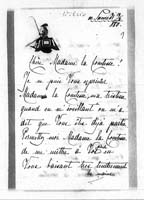 Chère Madame la Comtesse !
Je ne puis Vous exprimer
Madame la Comtesse, ma tristesse
quand en m'éveillant on m'a
dit que Vous étiez déjà partie
Permettez moi Madame la Comtesse
de me mettre à Vos
Vous baisant très tendrement
les mains